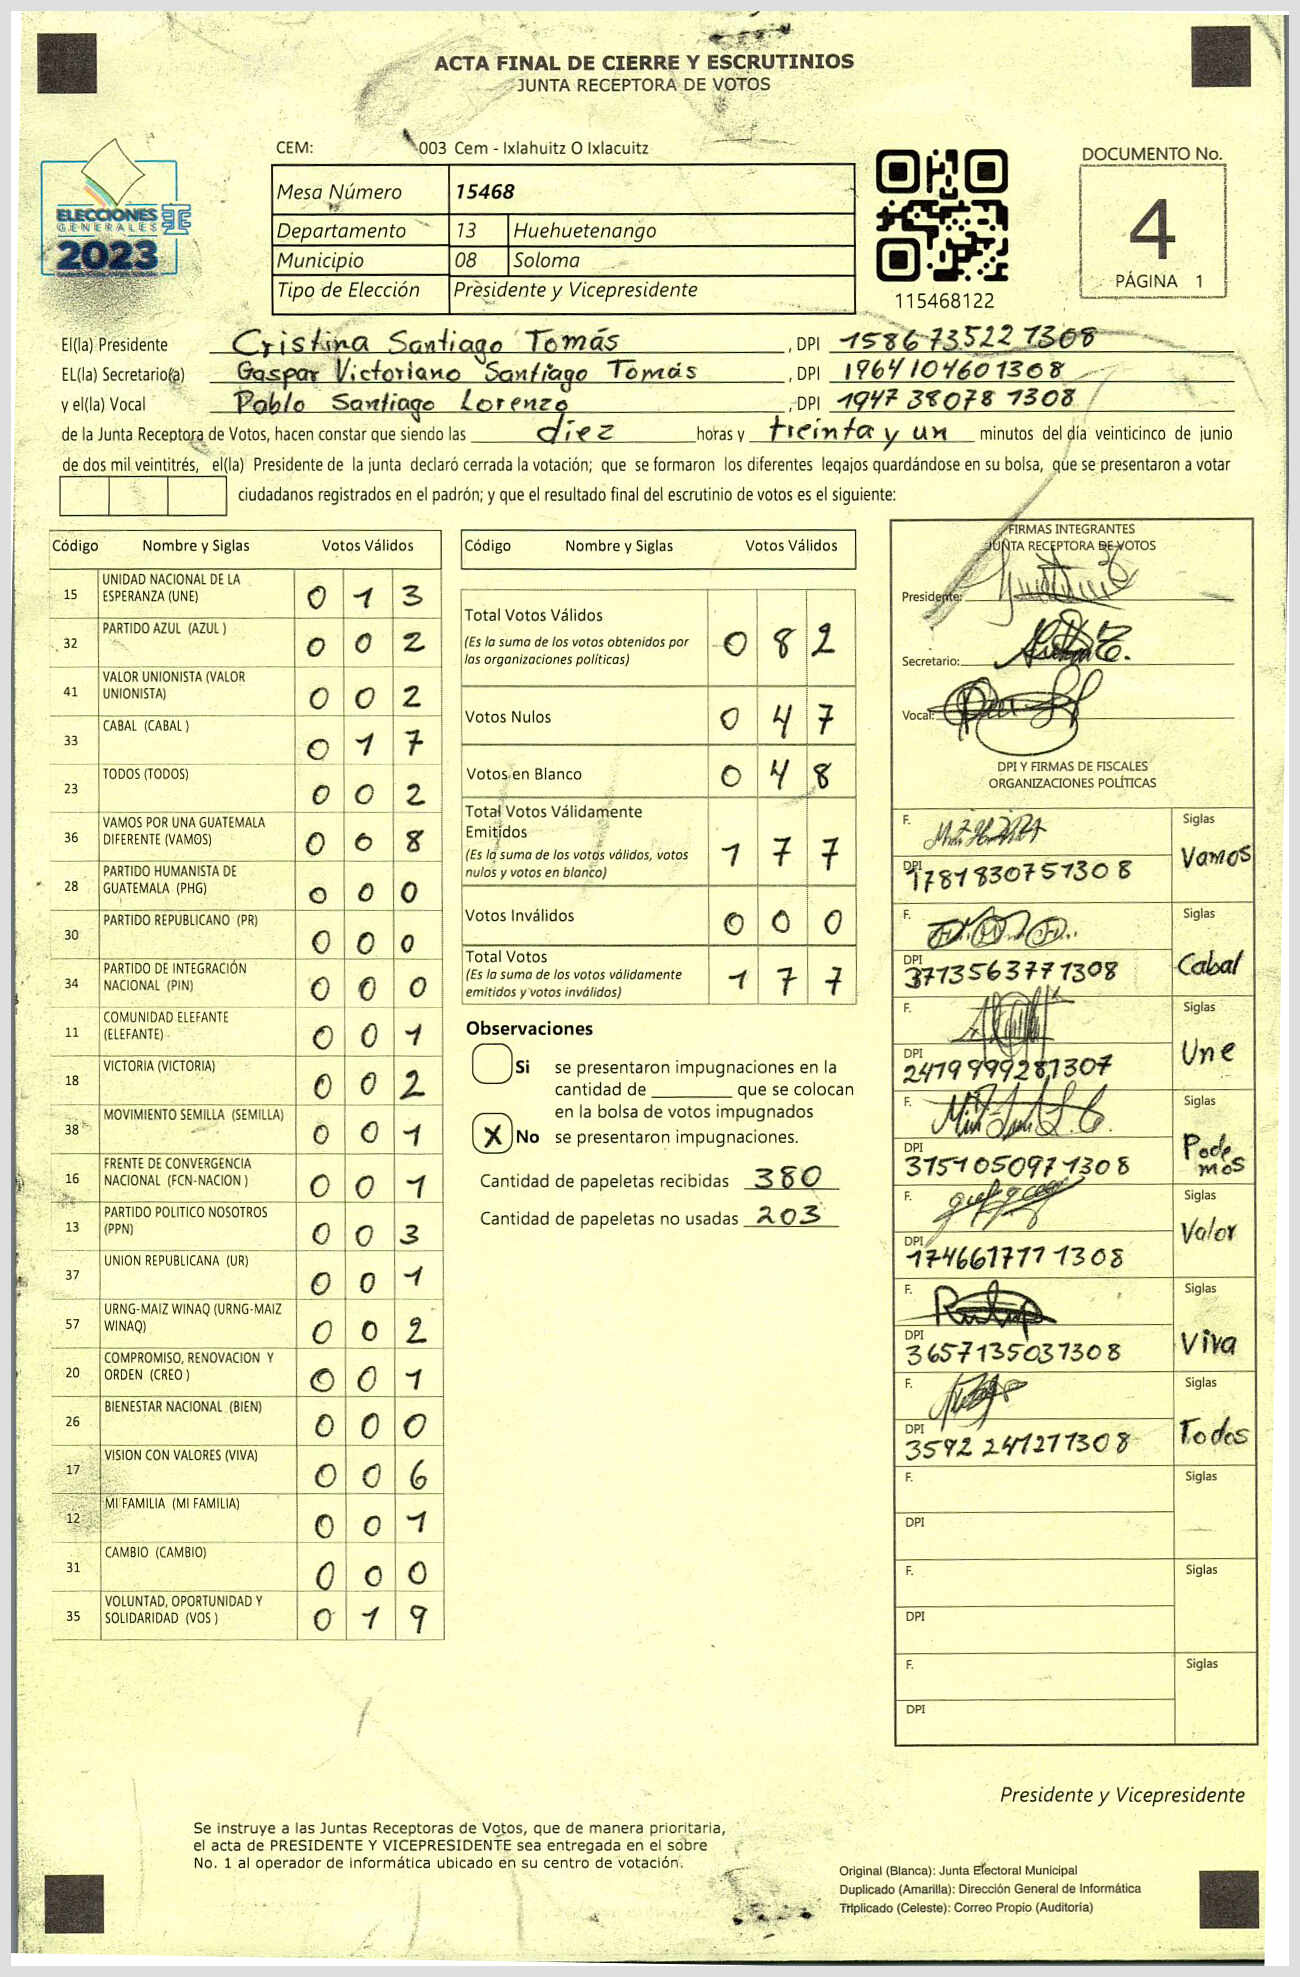 ACTA FINAL DE CIERRE Y ESCRUTINIOS
JUNTA RECEPTORA DE VOTOS
ELECCIONES
GENERALES
2023
CEM: 003 Cem - Ixlahuitz O Ixlacuitz
Mesa Número 15468
Departamento 13 Huehuetenango
Municipio 08 Soloma
Tipo de Elección Presidente y Vicepresidente
115468122
DOCUMENTO No.
4
PÁGINA 1
El(la) Presidente Cristina Santiago Tomás , DPI 1586735221308
EL(la) Secretario(a) Gaspar Victoriano Santiago Tomás , DPI 1964104601308
y el(la) Vocal Pablo Santiago Lorenzo , DPI 1947380781308
de la Junta Receptora de Votos, hacen constar que siendo las diez horas y treinta y un minutos del día veinticinco de junio
de dos mil veintitrés, el(la) Presidente de la junta declaró cerrada la votación; que se formaron los diferentes legajos guardándose en su bolsa, que se presentaron a votar
ciudadanos registrados en el padrón; y que el resultado final del escrutinio de votos es el siguiente:
Código Nombre y Siglas Votos Válidos
15 UNIDAD NACIONAL DE LA ESPERANZA (UNE) 0 1 3
32 PARTIDO AZUL (AZUL ) 0 0 2
41 VALOR UNIONISTA (VALOR UNIONISTA) 0 0 2
33 CABAL (CABAL ) 0 1 7
23 TODOS (TODOS) 0 0 2
36 VAMOS POR UNA GUATEMALA DIFERENTE (VAMOS) 0 0 8
28 PARTIDO HUMANISTA DE GUATEMALA (PHG) 0 0 0
30 PARTIDO REPUBLICANO (PR) 0 0 0
34 PARTIDO DE INTEGRACIÓN NACIONAL (PIN) 0 0 0
11 COMUNIDAD ELEFANTE (ELEFANTE) 0 0 1
18 VICTORIA (VICTORIA) 0 0 2
38 MOVIMIENTO SEMILLA (SEMILLA) 0 0 1
16 FRENTE DE CONVERGENCIA NACIONAL (FCN-NACION ) 0 0 1
13 PARTIDO POLITICO NOSOTROS (PPN) 0 0 3
37 UNION REPUBLICANA (UR) 0 0 1
57 URNG-MAIZ WINAQ (URNG-MAIZ WINAQ) 0 0 2
20 COMPROMISO, RENOVACION Y ORDEN (CREO ) 0 0 1
26 BIENESTAR NACIONAL (BIEN) 0 0 0
17 VISION CON VALORES (VIVA) 0 0 6
12 MI FAMILIA (MI FAMILIA) 0 0 1
31 CAMBIO (CAMBIO) 0 0 0
35 VOLUNTAD, OPORTUNIDAD Y SOLIDARIDAD (VOS ) 0 1 9
Código Nombre y Siglas Votos Válidos
Total Votos Válidos 0 8 2
(Es la suma de los votos obtenidos por
las organizaciones políticas)
Votos Nulos 0 4 7
Votos en Blanco 0 4 8
Total Votos Válidamente
Emitidos 1 7 7
(Es la suma de los votos válidos, votos
nulos y votos en blanco)
Votos Inválidos 0 0 0
Total Votos 1 7 7
(Es la suma de los votos válidamente
emitidos y votos inválidos)
Observaciones
Si se presentaron impugnaciones en la
cantidad de ________ que se colocan
en la bolsa de votos impugnados
X No se presentaron impugnaciones.
Cantidad de papeletas recibidas 380
Cantidad de papeletas no usadas 203
FIRMAS INTEGRANTES
JUNTA RECEPTORA DE VOTOS
Presidente:
Secretario:
Vocal:
DPI Y FIRMAS DE FISCALES
ORGANIZACIONES POLÍTICAS
F. Siglas
DPI 1781830751308 Vamos
F. Siglas
DPI 3713563771308 Cabal
F. Siglas
DPI 2419999281307 Une
F. Siglas
DPI 3151050971308 Podemos
F. Siglas
DPI 1746617171308 Valor
F. Siglas
DPI 3657135031308 Viva
F. Siglas
DPI 3592241211308 Todos
F. Siglas
DPI
F. Siglas
DPI
F. Siglas
DPI
Presidente y Vicepresidente
Se instruye a las Juntas Receptoras de Votos, que de manera prioritaria,
el acta de PRESIDENTE Y VICEPRESIDENTE sea entregada en el sobre
No. 1 al operador de informática ubicado en su centro de votación.
Original (Blanca): Junta Electoral Municipal
Duplicado (Amarilla): Dirección General de Informática
Triplicado (Celeste): Correo Propio (Auditoría)